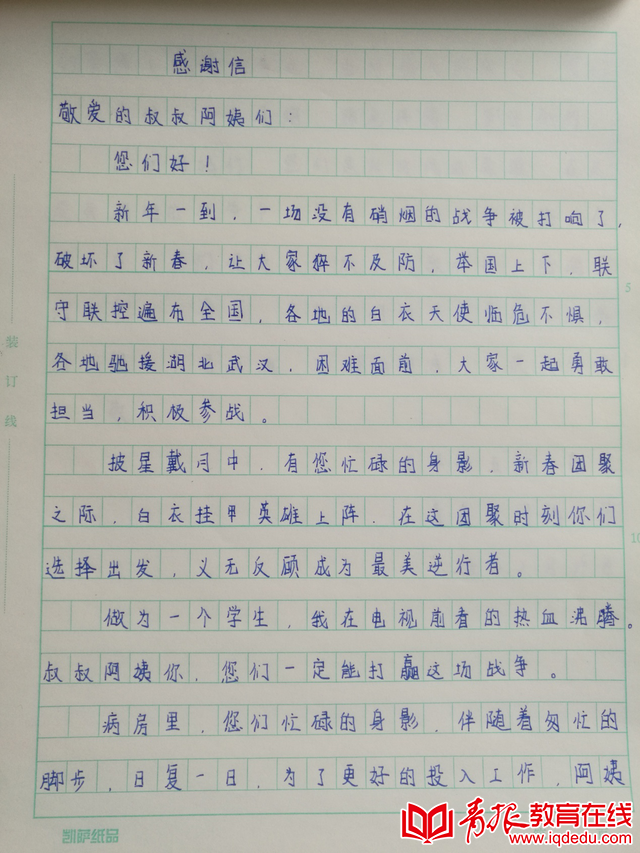 感谢信
敬爱的叔叔阿姨们：
您们好！
新年一到，一场没有硝烟的战争被打响了，
破坏了新春，让大家猝不及防，举国上下，联
守联控遍布全国，各地的白衣天使临危不惧，
各地驰援湖北武汉，困难面前，大家一起勇敢
担当，积极参战。
披星戴月中，有您忙碌的身影，新春团聚
之际，白衣挂甲英雄上阵，在这团聚时刻你们
选择出发，义无反顾成为最美逆行者。
做为一个学生，我在电视前看的热血沸腾。
叔叔阿姨你，您们一定能打赢这场战争。
病房里，您们忙碌的身影，伴随着匆忙的
脚步，日复一日，为了更好的投入工作，阿姨
装订线
5
10
凯萨纸品
青报教育在线
www.iqdedu.com